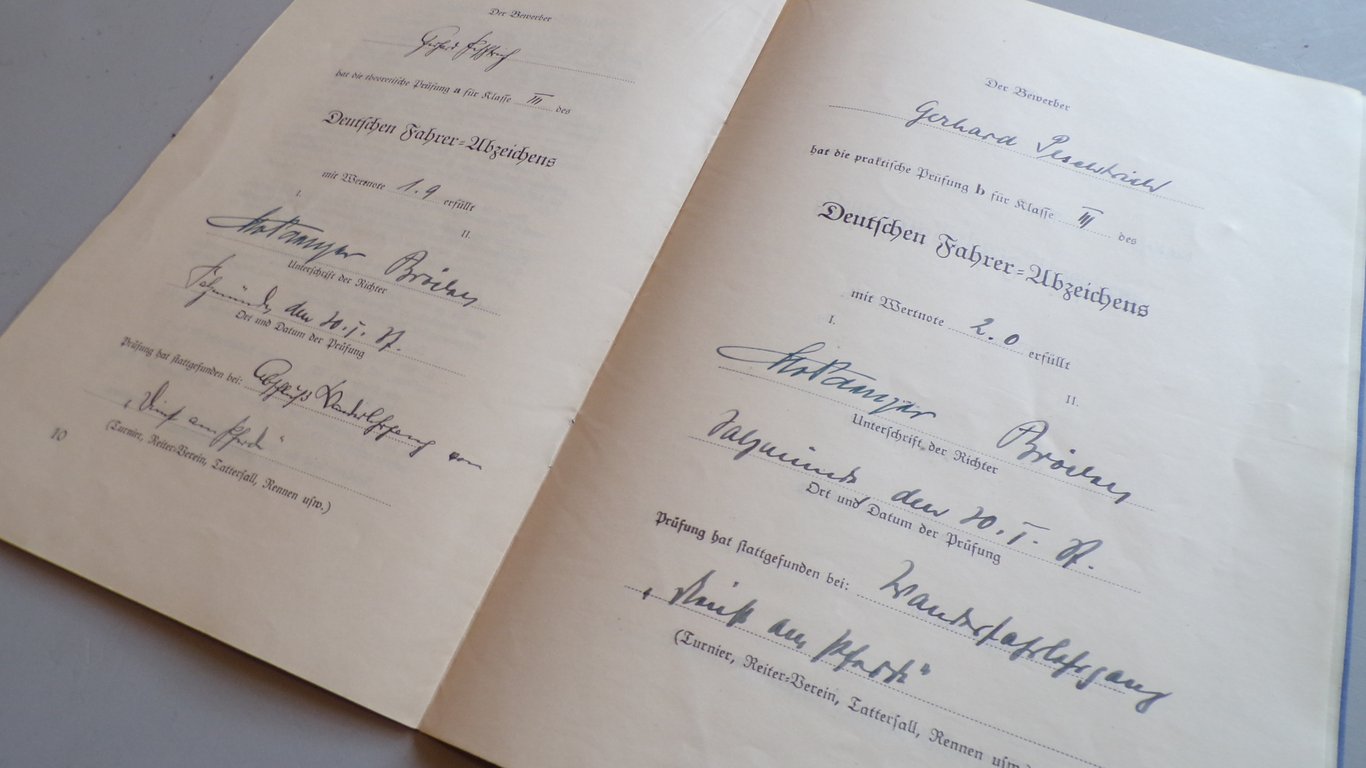 Der Bewerber
Gerhard
hat die theoretische Prüfung a für Klasse III des
Deutschen Fahrer-Abzeichens
mit Wertnote 1.9 erfüllt
I.
II.
Unterschrift der Richter
Salzmünde, den 20. I. 37.
Ort und Datum der Prüfung
Prüfung hat stattgefunden bei:
"Dienst am Pferde"
(Turnier, Reiter-Verein, Tattersall, Rennen usw.)
10
Der Bewerber
Gerhard
hat die praktische Prüfung b für Klasse III des
Deutschen Fahrer-Abzeichens
mit Wertnote 2.0 erfüllt
I.
II.
Unterschrift der Richter
Salzmünde den 20. I. 37.
Ort und Datum der Prüfung
Prüfung hat stattgefunden bei: Wanderfahrlehrgang
"Dienst am Pferde"
(Turnier, Reiter-Verein, Tattersall, Rennen usw.